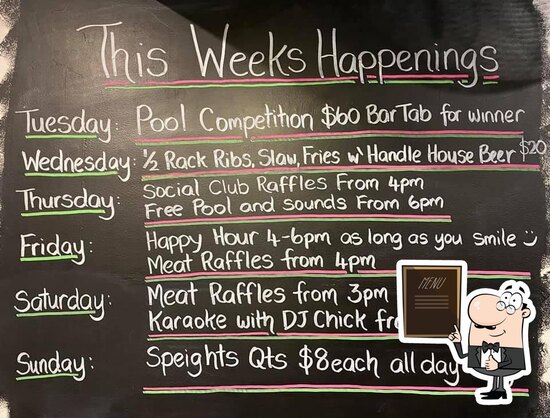 This Weeks Happenings
Tuesday: Pool Competition $60 Bar Tab for winner
Wednesday: ½ Rack Ribs, Slaw, Fries w' Handle House Beer $20
Thursday: Social Club Raffles From 4pm
Free Pool and sounds From 6pm
Friday: Happy Hour 4-6pm as long as you smile
Meat Raffles from 4pm
Saturday: Meat Raffles from 3pm
Karaoke with DJ Chick
Sunday: Speights Qts $8each all day
MENU